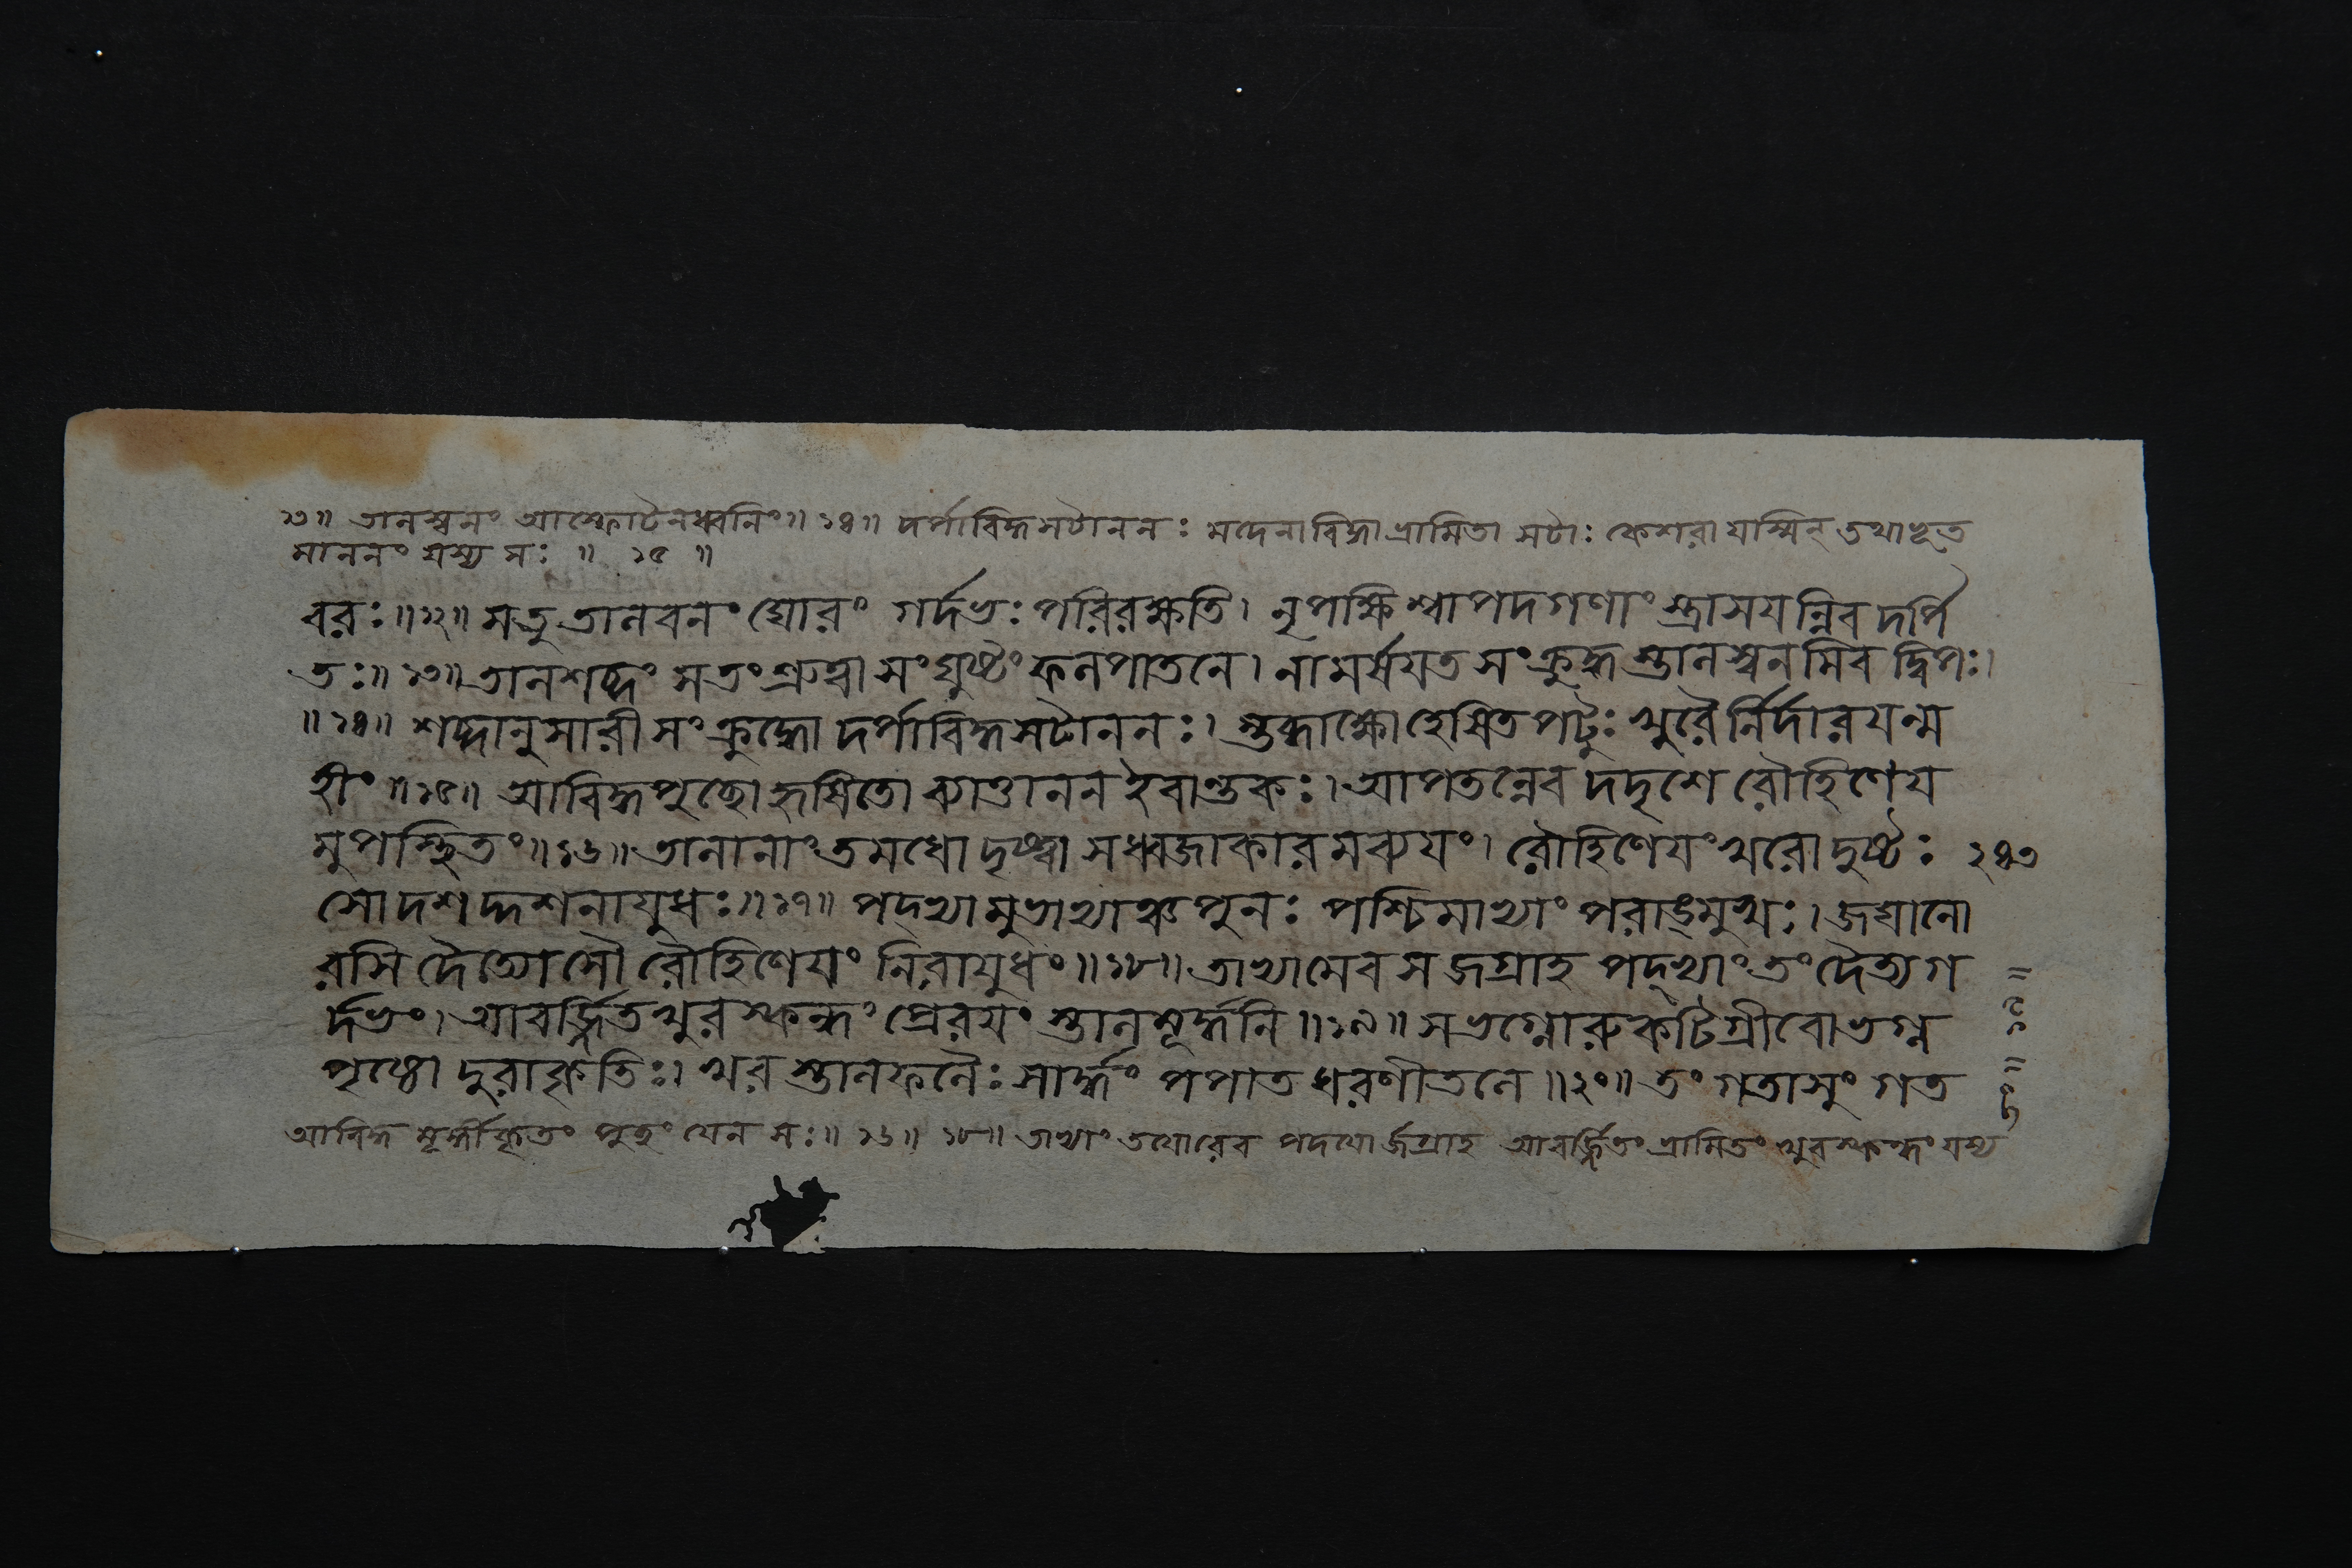 ১৩॥ তালস্বনং আস্ফোটনধ্বনিং॥ ১৪॥ দর্পাবিদ্ধসটাননঃ মদেনাবিদ্ধা ভ্রামিতা সটাঃ কেশরা যস্মিন্ তথাভূত
মাননং যস্য সঃ ॥ ১৫ ॥
বরঃ॥১২॥ সতু তালবনং ঘোরং গর্দভঃ পরিরক্ষতি। নৃপক্ষিশ্বাপদগণাংস্ত্রাসয়ন্নিব দর্পি
তঃ॥১৩॥ তালশব্দং সতং শ্রুত্বা সংঘুষ্টং ফলপাতনে। নামর্ষয়ত সংক্রুদ্ধস্তালস্বনমিব দ্বিপঃ।
॥১৪॥ শব্দানুসারী সংক্রুদ্ধো দর্পাবিদ্ধসটাননঃ। স্তব্ধাক্ষো হেষিতপটুঃ খুরৈর্নির্দারয়ন্ম
হীং॥১৫॥ আবিদ্ধপুচ্ছো হৃষিতো ব্যাত্তানন ইবান্তকঃ। আপতন্নেব দদৃশে রৌহিণেয়
মুপস্থিতং॥১৬॥ তালানাং তমধো দৃষ্ট্বা সধ্বজাকারমব্যয়ং। রৌহিণেয়ং খরো দুষ্টঃ ২৪৩
সোদশদ্দশনায়ুধঃ॥১৭॥ পদ্ভ্যামুভাভ্যাঞ্চ পুনঃ পশ্চিমাভ্যাং পরাঙ্মুখঃ। জঘানো
রসি দৈত্যোসৌ রৌহিণেয়ং নিরায়ুধং॥১৮॥ তাভ্যামেব সজগ্রাহ পদ্ভ্যাং তং দৈত্যগ
র্দভং। আবর্জ্জিতখুরস্কন্ধং প্রেরয়ং স্তালমূর্দ্ধনি॥১৯॥ সভগ্নোরুকটিগ্রীবো ভগ্ন
পৃষ্ঠো দুরাকৃতিঃ। খরস্তালফলৈঃ সার্দ্ধং পপাত ধরণীতলে॥২০॥ তং গতাসুং গত
আবিদ্ধ মূর্দ্ধীকৃতং পুচ্ছং যেন সঃ॥ ১৬॥ ১৮॥ তাভ্যাং তয়োরেব পদয়োর্জগ্রাহ আবর্জ্জিতং ভ্রামিতং খুরস্কন্ধং যস্য
তং ॥ ১৯ ॥